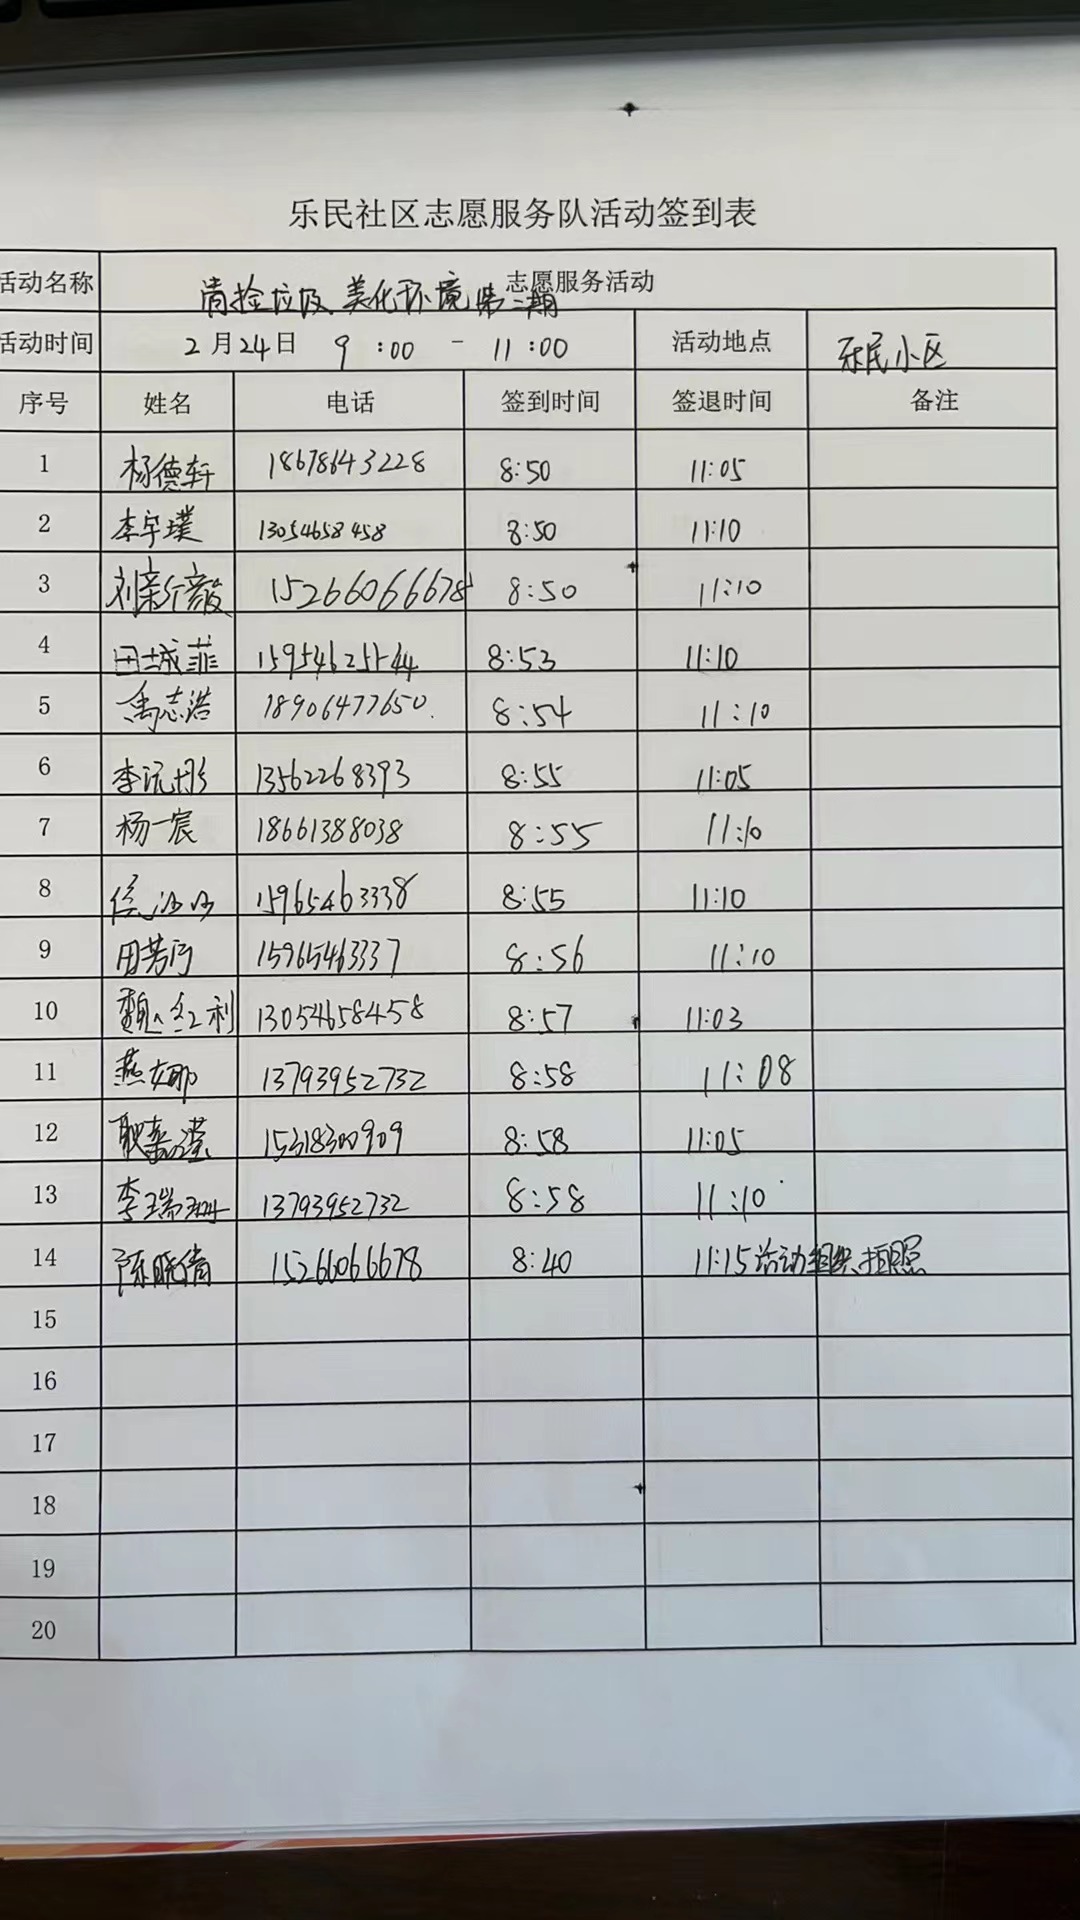 乐民社区志愿服务队活动签到表
活动名称 清捡垃圾 美化环境 第二期 志愿服务活动
活动时间 2月24日 9:00 - 11:00 活动地点 乐民小区
序号 姓名 电话 签到时间 签退时间 备注
1 杨德轩 18678643228 8:50 11:05
2 李宇璞 13054658458 8:50 11:10
3 15266066678 8:50 11:10
4 田城菲 15954625544 8:53 11:10
5 禹志浩 18906477650. 8:54 11:10
6 李沅彤 13562268393 8:55 11:05
7 杨一宸 18661388038 8:55 11:10
8 15965463338 8:55 11:10
9 15965463337 8:56 11:10
10 魏红利 13054658458 8:57 11:03
11 燕娜 13793952732 8:58 11:08
12 15318300909 8:58 11:05
13 李瑞珊 13793952732 8:58 11:10
14 陈晓倩 15266066678 8:40 11:15 活动组织、拍照
15
16
17
18
19
20